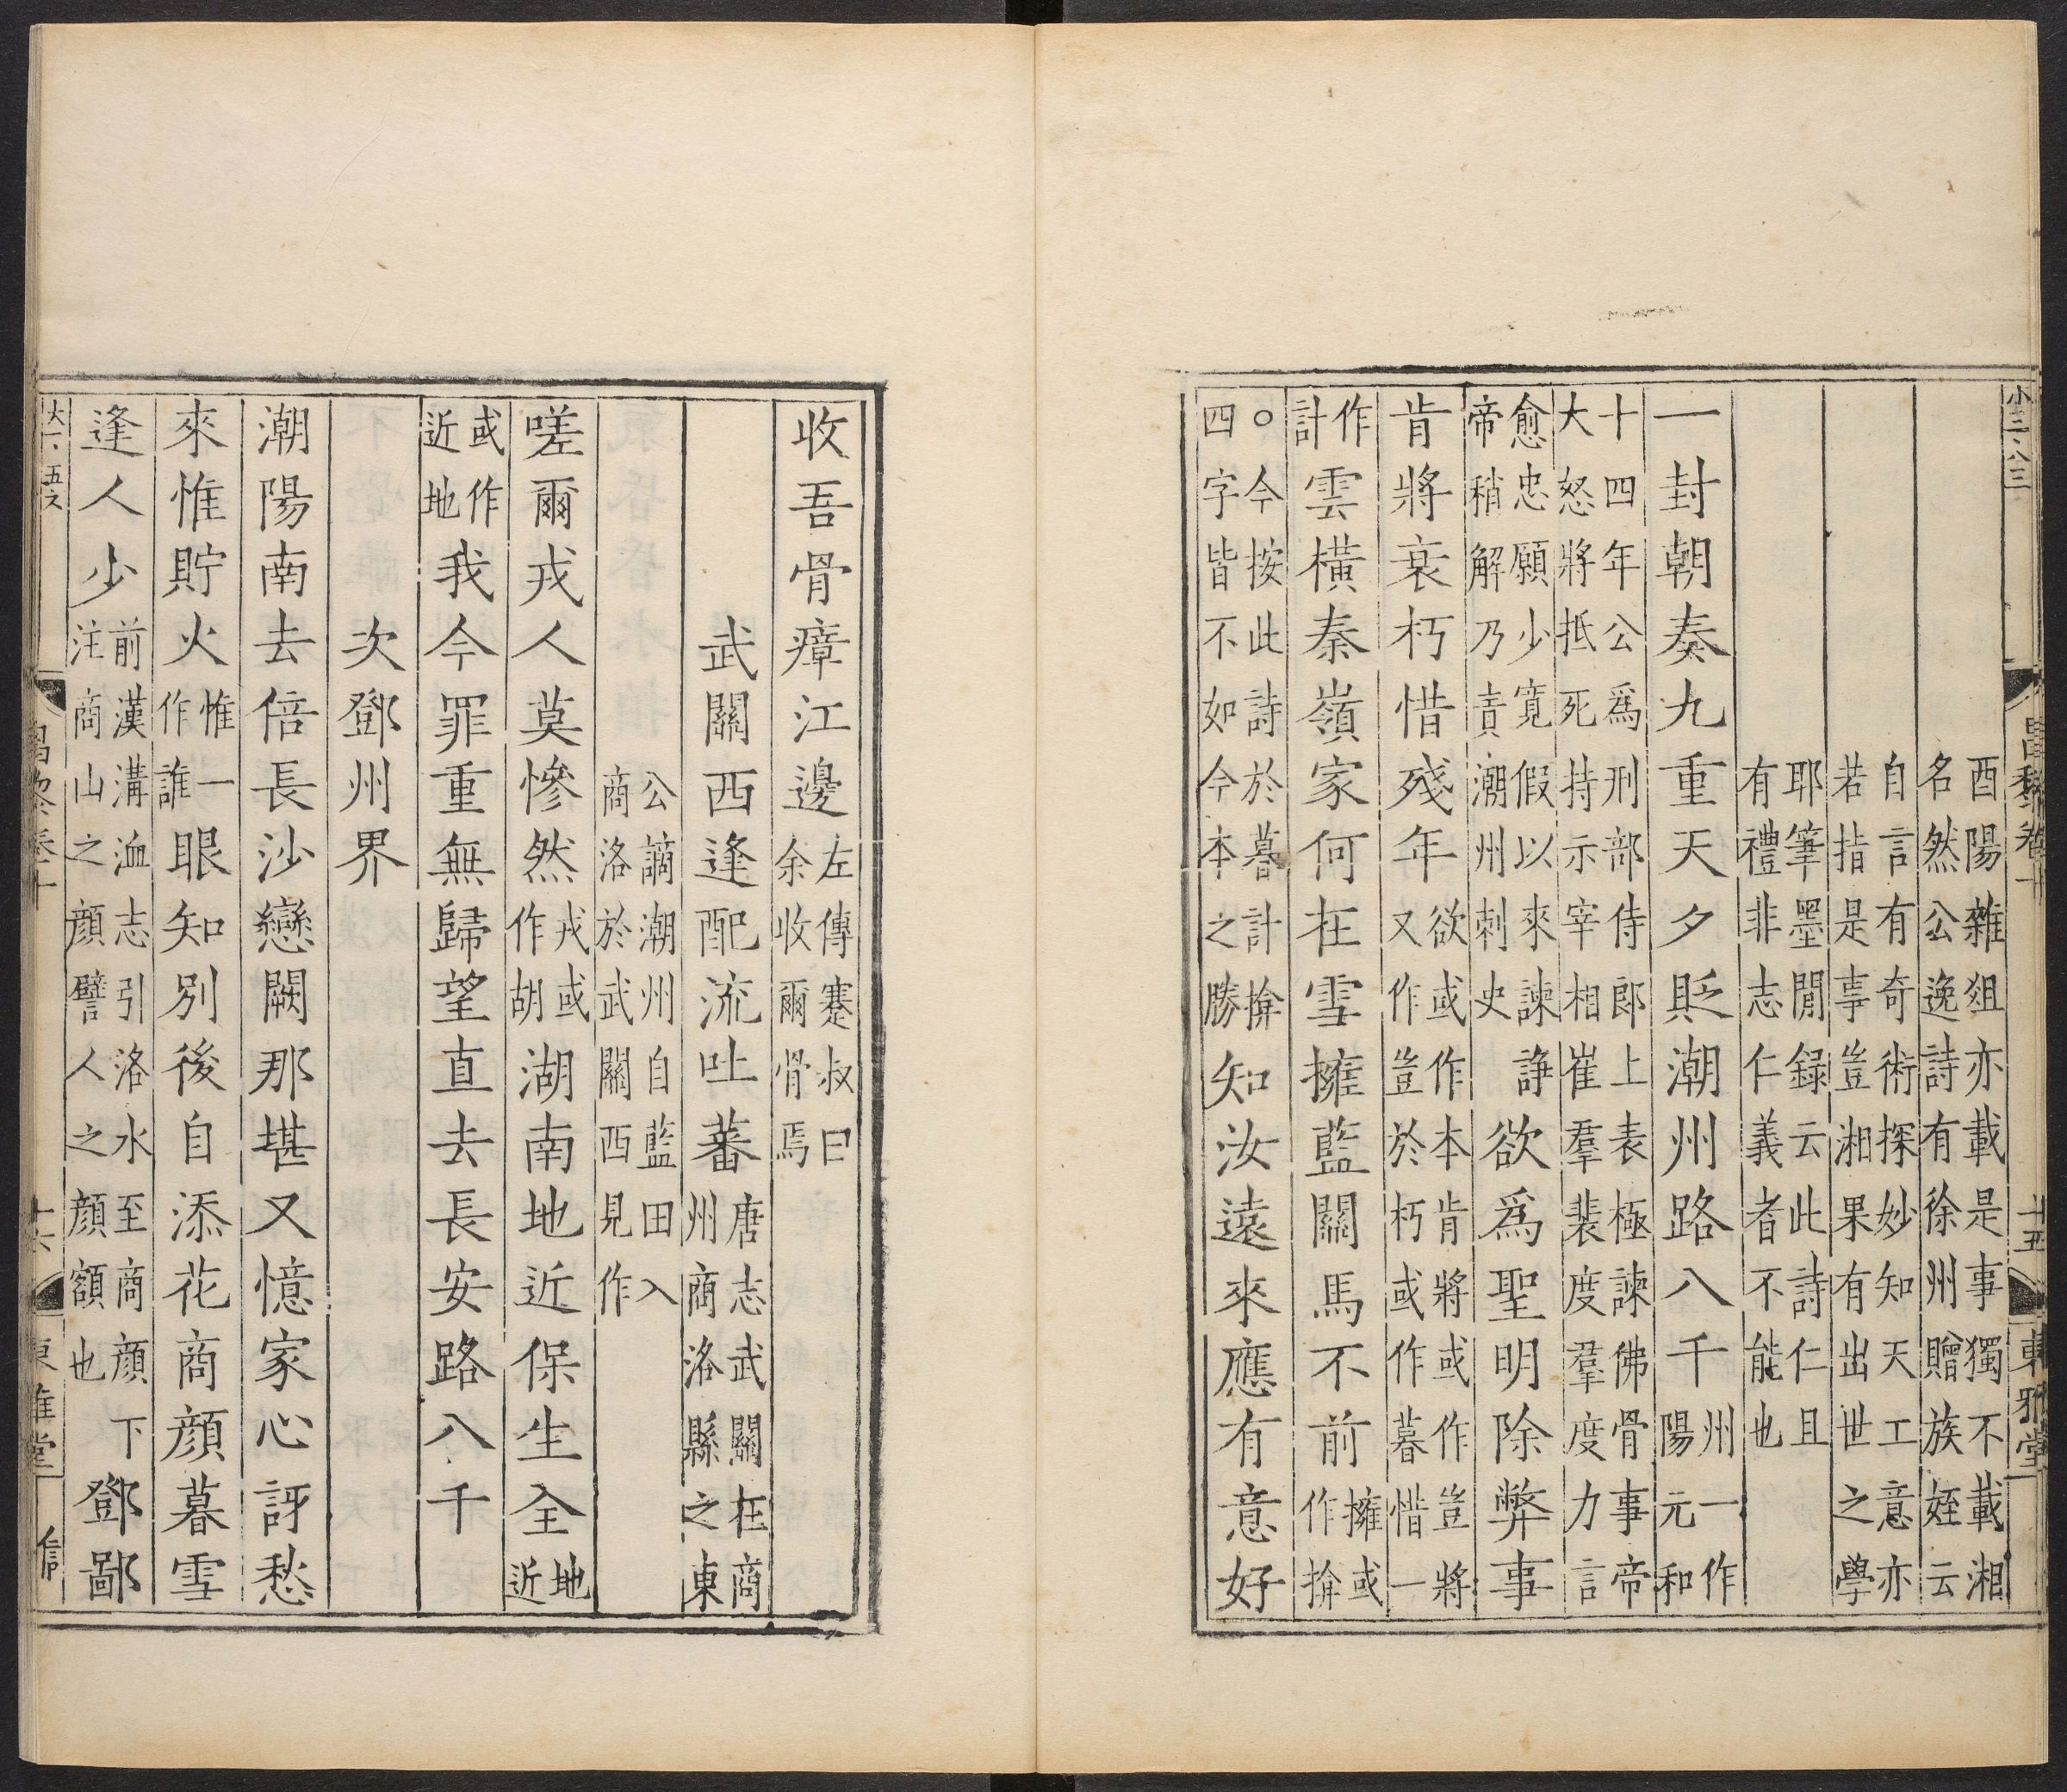 昌黎卷十 十五 東雅堂
酉陽雜俎亦載是事獨不載湘
名然公逸詩有徐州贈族姪云
自言有奇術探妙知天工意亦
若指是事豈湘果有出世之學
耶筆墨閒録云此詩仁且
有禮非志仁義者不能也
一封朝奏九重天夕貶潮州路八千州一作陽元和
十四年公爲刑部侍郎上表極諫佛骨事帝
大怒將抵死持示宰相崔羣裴度羣度力言
愈忠願少寬假以來諫諍帝稍解乃責潮州刺史欲爲聖明除弊事
肯將衰朽惜殘年欲或作本肯將或作豈將又作豈於朽或作暮惜一
作計雲橫秦嶺家何在雪擁藍關馬不前擁或作揜
○今按此詩於暮計揜四字皆不如今本之勝知汝遠來應有意好
收吾骨瘴江邊左傳蹇叔曰余收爾骨焉
武關西逢配流吐蕃唐志武關在商州商洛縣之東
公謫潮州自藍田入
商洛於武關西見作
嗟爾戎人莫慘然戎或作胡湖南地近保生全地近
或作近地我今罪重無歸望直去長安路八千
次鄧州界
潮陽南去倍長沙戀闕那堪又憶家心訝愁
來惟貯火惟一作誰眼知別後自添花商顏暮雪
逢人少前漢溝洫志引洛水至商顏下注商山之顏譬人之顏額也鄧鄙
昌黎卷十 十六 東雅堂